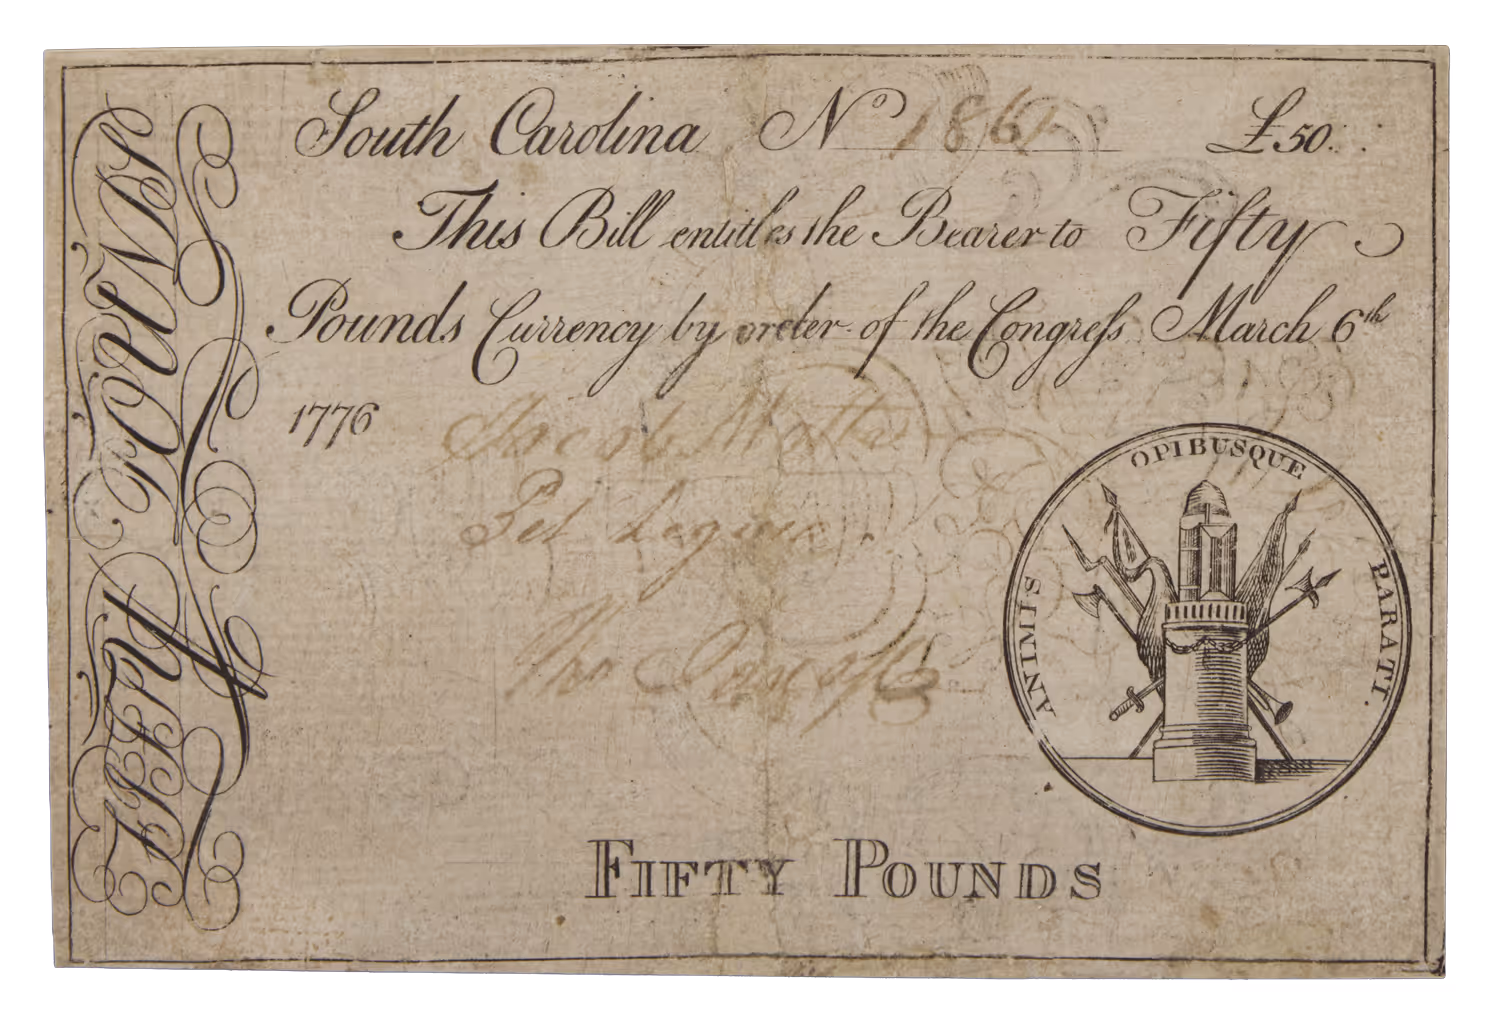 South Carolina No 1861 £50.
This Bill entitles the Bearer to Fifty
Pounds Currency by order of the Congreſs March 6th
1776
Jacob Motte
Pet Legare
FIFTY POUNDS
ANIMIS OPIBUSQUE PARATI.
FIFTY POUNDS